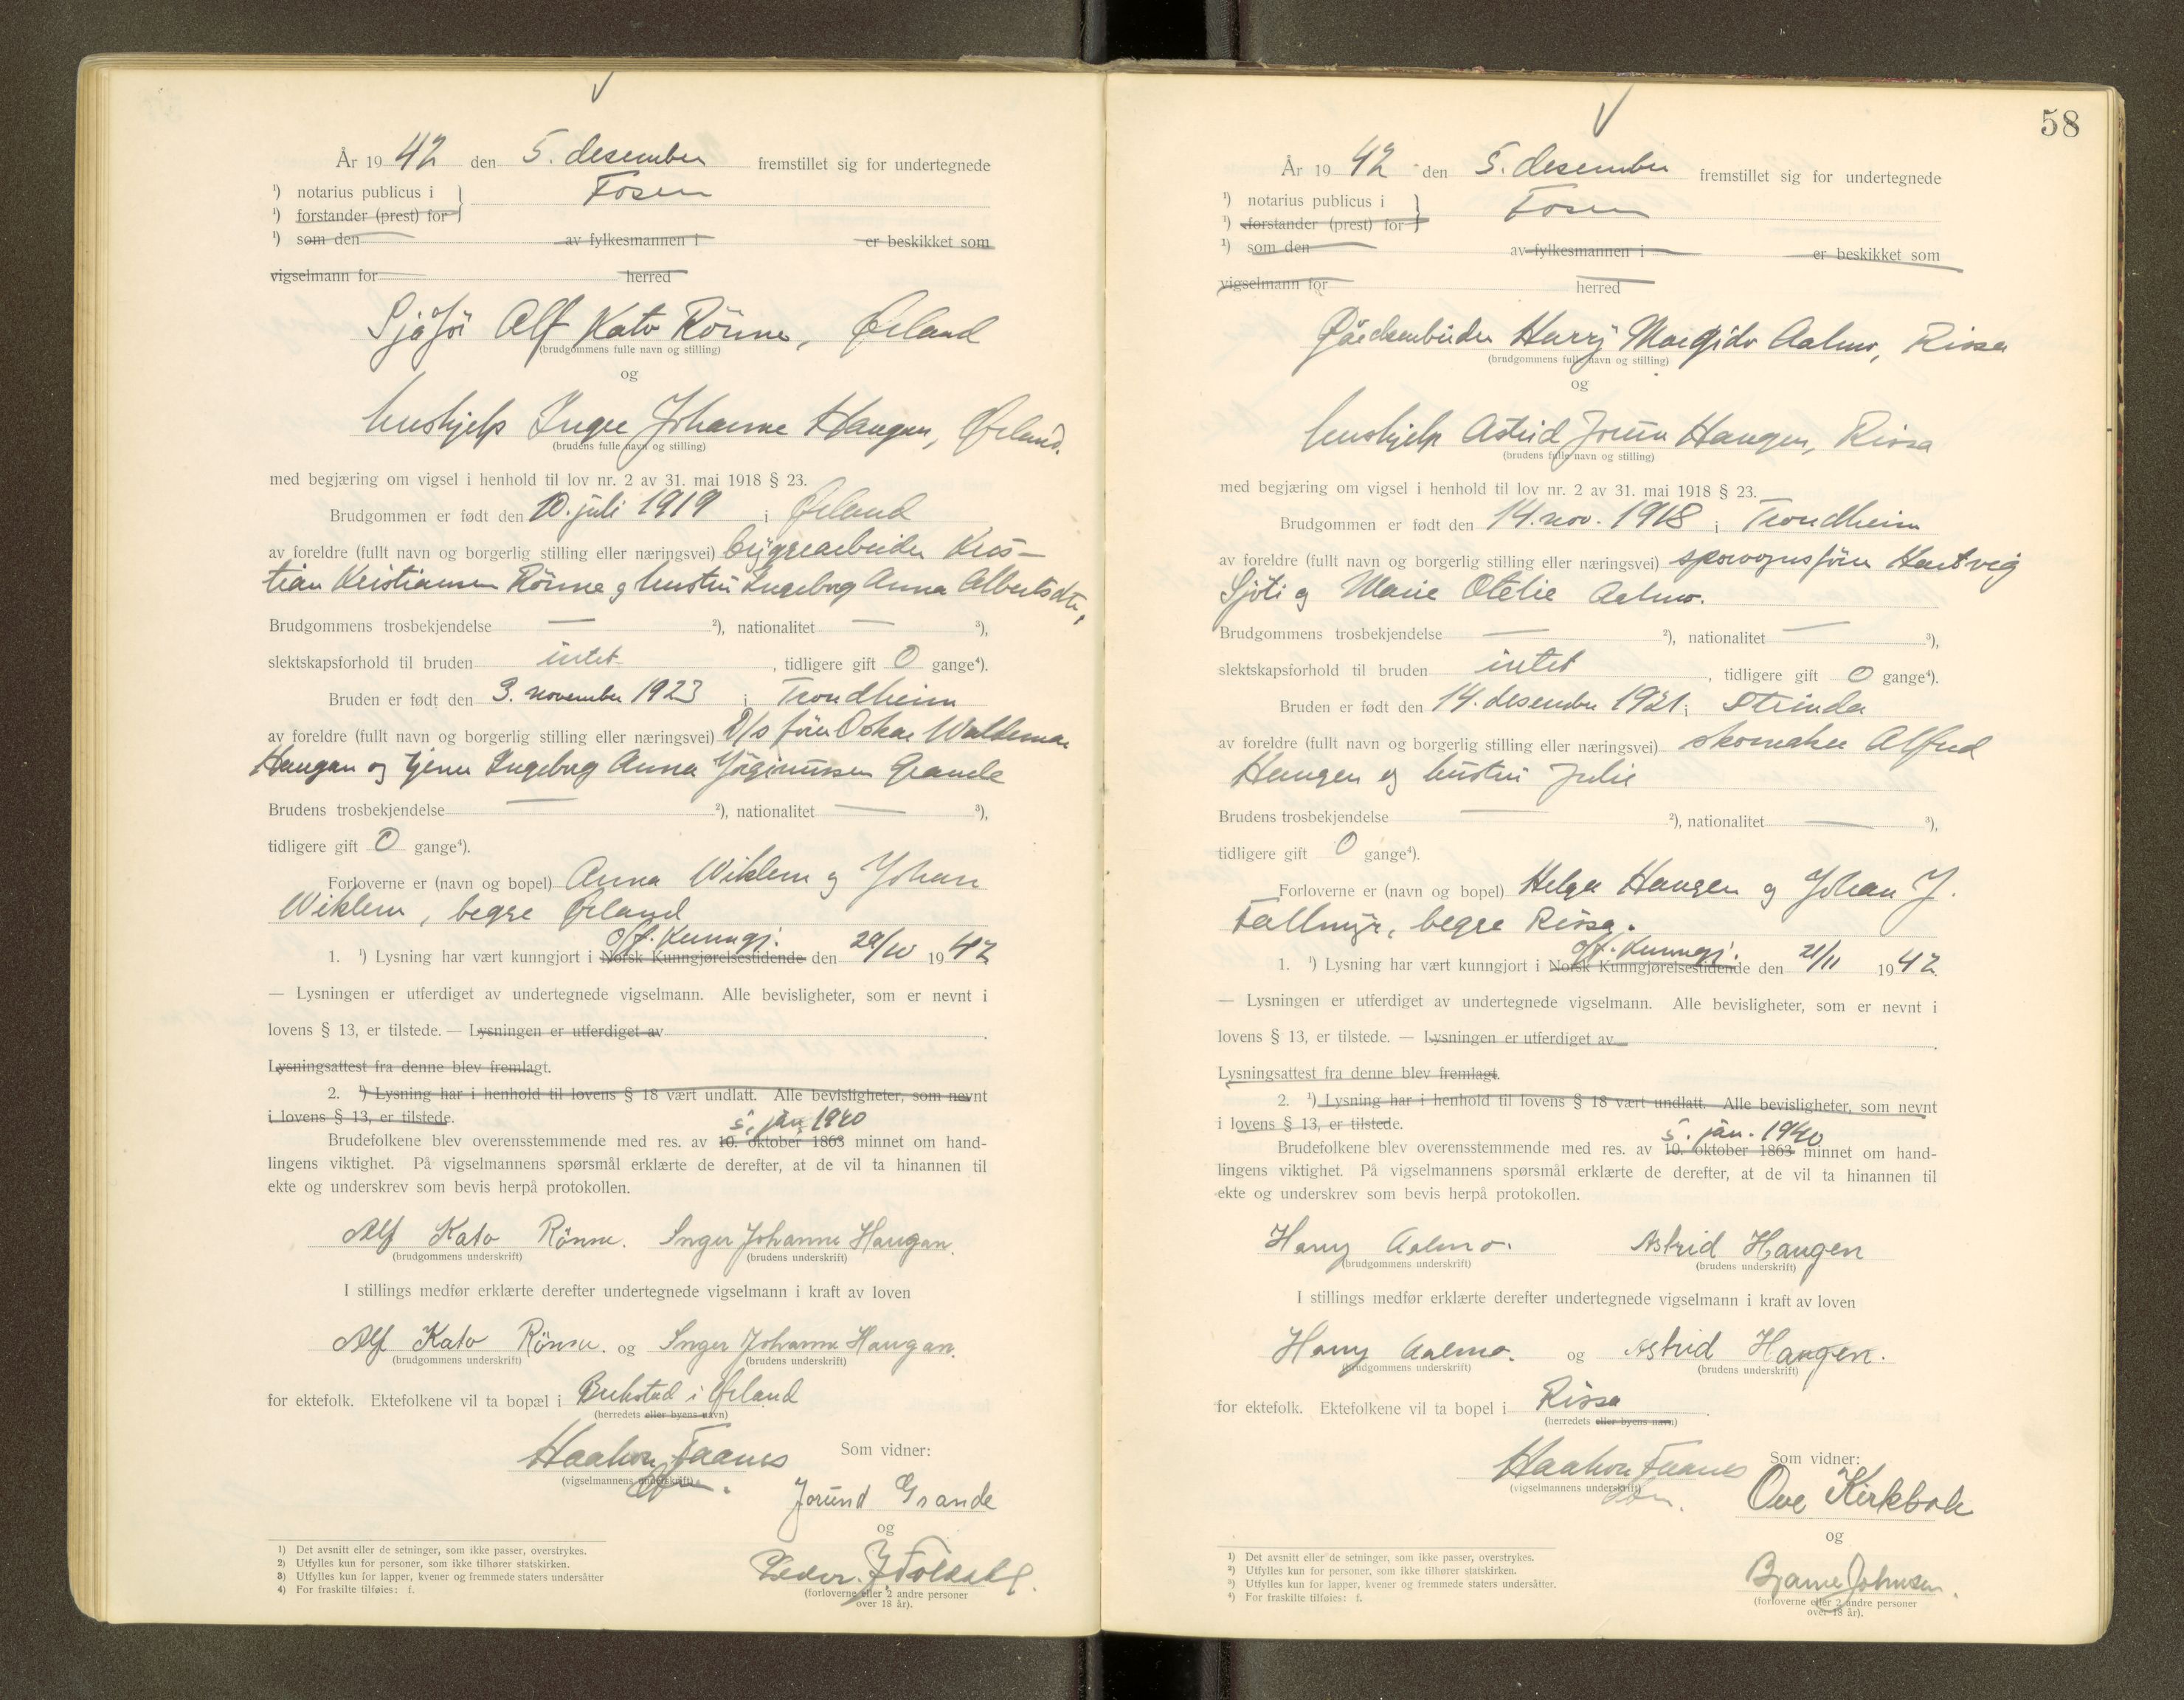 År 19 42 den 5. desember fremstillet sig for undertegnede
¹) notarius publicus i } Fosen
¹) forstander (prest) for
¹) som den av fylkesmannen i er beskikket som
vigselmann for herred
Sjåfør Alf Kato Rönne, Ørland
(brudgommens fulle navn og stilling)
og
hushjelp Inger Johanne Haugan, Ørland.
(brudens fulle navn og stilling)
med begjæring om vigsel i henhold til lov nr. 2 av 31. mai 1918 § 23.
Brudgommen er født den 10. juli 1919 i Ørland
av foreldre (fullt navn og borgerlig stilling eller næringsvei) bryggearbeider Kris-
tian Kristiansen Rönne og hustru Ingeborg Anna Albertsdtr,
Brudgommens trosbekjendelse — ²), nationalitet — ³),
slektskapsforhold til bruden intet, tidligere gift 0 gange⁴).
Bruden er født den 3. november 1923 i Trondheim
av foreldre (fullt navn og borgerlig stilling eller næringsvei) D/s fører Oskar Waldemar
Haugan og Ingebrg Anna Grande
Brudens trosbekjendelse — ²), nationalitet — ³),
tidligere gift 0 gange⁴).
Forloverne er (navn og bopel) Anna Wiklem og Johan
Wiklem, begge Ørland
off. Kunngj.
1. ¹) Lysning har vært kunngjort i Norsk Kunngjørelsestidende den /10 1942
— Lysningen er utferdiget av undertegnede vigselmann. Alle bevisligheter, som er nevnt i
lovens § 13, er tilstede. — Lysningen er utferdiget av .
Lysningsattest fra denne blev fremlagt.
2. ¹) Lysning har i henhold til lovens § 18 vært undlatt. Alle bevisligheter, som nevnt
i lovens § 13, er tilstede.
5. jan. 1940
Brudefolkene blev overensstemmende med res. av 10. oktober 1863 minnet om hand-
lingens viktighet. På vigselmannens spørsmål erklærte de derefter, at de vil ta hinannen til
ekte og underskrev som bevis herpå protokollen.
Alf Kato Rönne. Inger Johanne Haugan.
(brudgommens underskrift) (brudens underskrift)
I stillings medfør erklærte derefter undertegnede vigselmann i kraft av loven
Alf Kato Rönne. og Inger Johanne Haugan.
(brudgommens underskrift) (brudens underskrift)
for ektefolk. Ektefolkene vil ta bopæl i Brekstad i Ørland
(herredets eller byens navn)
Haakon Faanes Som vidner:
(vigselmannens underskrift)
Jorund Grande
og
Peder. J
(forloverne eller 2 andre personer
over 18 år).
1) Det avsnitt eller de setninger, som ikke passer, overstrykes.
2) Utfylles kun for personer, som ikke tilhører statskirken.
3) Utfylles kun for lapper, kvener og fremmede staters undersåtter
4) For fraskilte tilføies: f.
58
År 19 42 den 5. desember fremstillet sig for undertegnede
¹) notarius publicus i } Fosen
¹) forstander (prest) for
¹) som den av fylkesmannen i er beskikket som
vigselmann for herred
Harry Margido Aalmo, Rissa
(brudgommens fulle navn og stilling)
og
hushjelp Astrid Jorun Haugen, Rissa
(brudens fulle navn og stilling)
med begjæring om vigsel i henhold til lov nr. 2 av 31. mai 1918 § 23.
Brudgommen er født den 14. nov. 1918 i Trondheim
av foreldre (fullt navn og borgerlig stilling eller næringsvei) sporvognsfører Hartvig
Sjöti og Marie Otelie Aalmo.
Brudgommens trosbekjendelse — ²), nationalitet — ³),
slektskapsforhold til bruden intet, tidligere gift 0 gange⁴).
Bruden er født den 14. desember 1921 i Strinda
av foreldre (fullt navn og borgerlig stilling eller næringsvei) skomaker Alfred
Haugen og hustru Julie
Brudens trosbekjendelse — ²), nationalitet — ³),
tidligere gift 0 gange⁴).
Forloverne er (navn og bopel) Helga Haugen og Johan J.
Fallmyr, begge Rissa.
off. Kunngj.
1. ¹) Lysning har vært kunngjort i Norsk Kunngjørelsestidende den 21/11 1942
— Lysningen er utferdiget av undertegnede vigselmann. Alle bevisligheter, som er nevnt i
lovens § 13, er tilstede. — Lysningen er utferdiget av .
Lysningsattest fra denne blev fremlagt.
2. ¹) Lysning har i henhold til lovens § 18 vært undlatt. Alle bevisligheter, som nevnt
i lovens § 13, er tilstede.
5. jan. 1940
Brudefolkene blev overensstemmende med res. av 10. oktober 1863 minnet om hand-
lingens viktighet. På vigselmannens spørsmål erklærte de derefter, at de vil ta hinannen til
ekte og underskrev som bevis herpå protokollen.
Harry Aalmo. Astrid Haugen
(brudgommens underskrift) (brudens underskrift)
I stillings medfør erklærte derefter undertegnede vigselmann i kraft av loven
Harry Aalmo. og Astrid Haugen.
(brudgommens underskrift) (brudens underskrift)
for ektefolk. Ektefolkene vil ta bopel i Rissa
(herredets eller byens navn)
Haakon Faanes Som vidner:
(vigselmannens underskrift)
Ove Kirkbak
og
Bjarne Johnsen.
(forloverne eller 2 andre personer
over 18 år).
¹) Det avsnitt eller de setninger, som ikke passer, overstrykes.
²) Utfylles kun for personer, som ikke tilhører statskirken.
³) Utfylles kun for lapper, kvener og fremmede staters undersåtter.
⁴) For fraskilte tilføies: f.